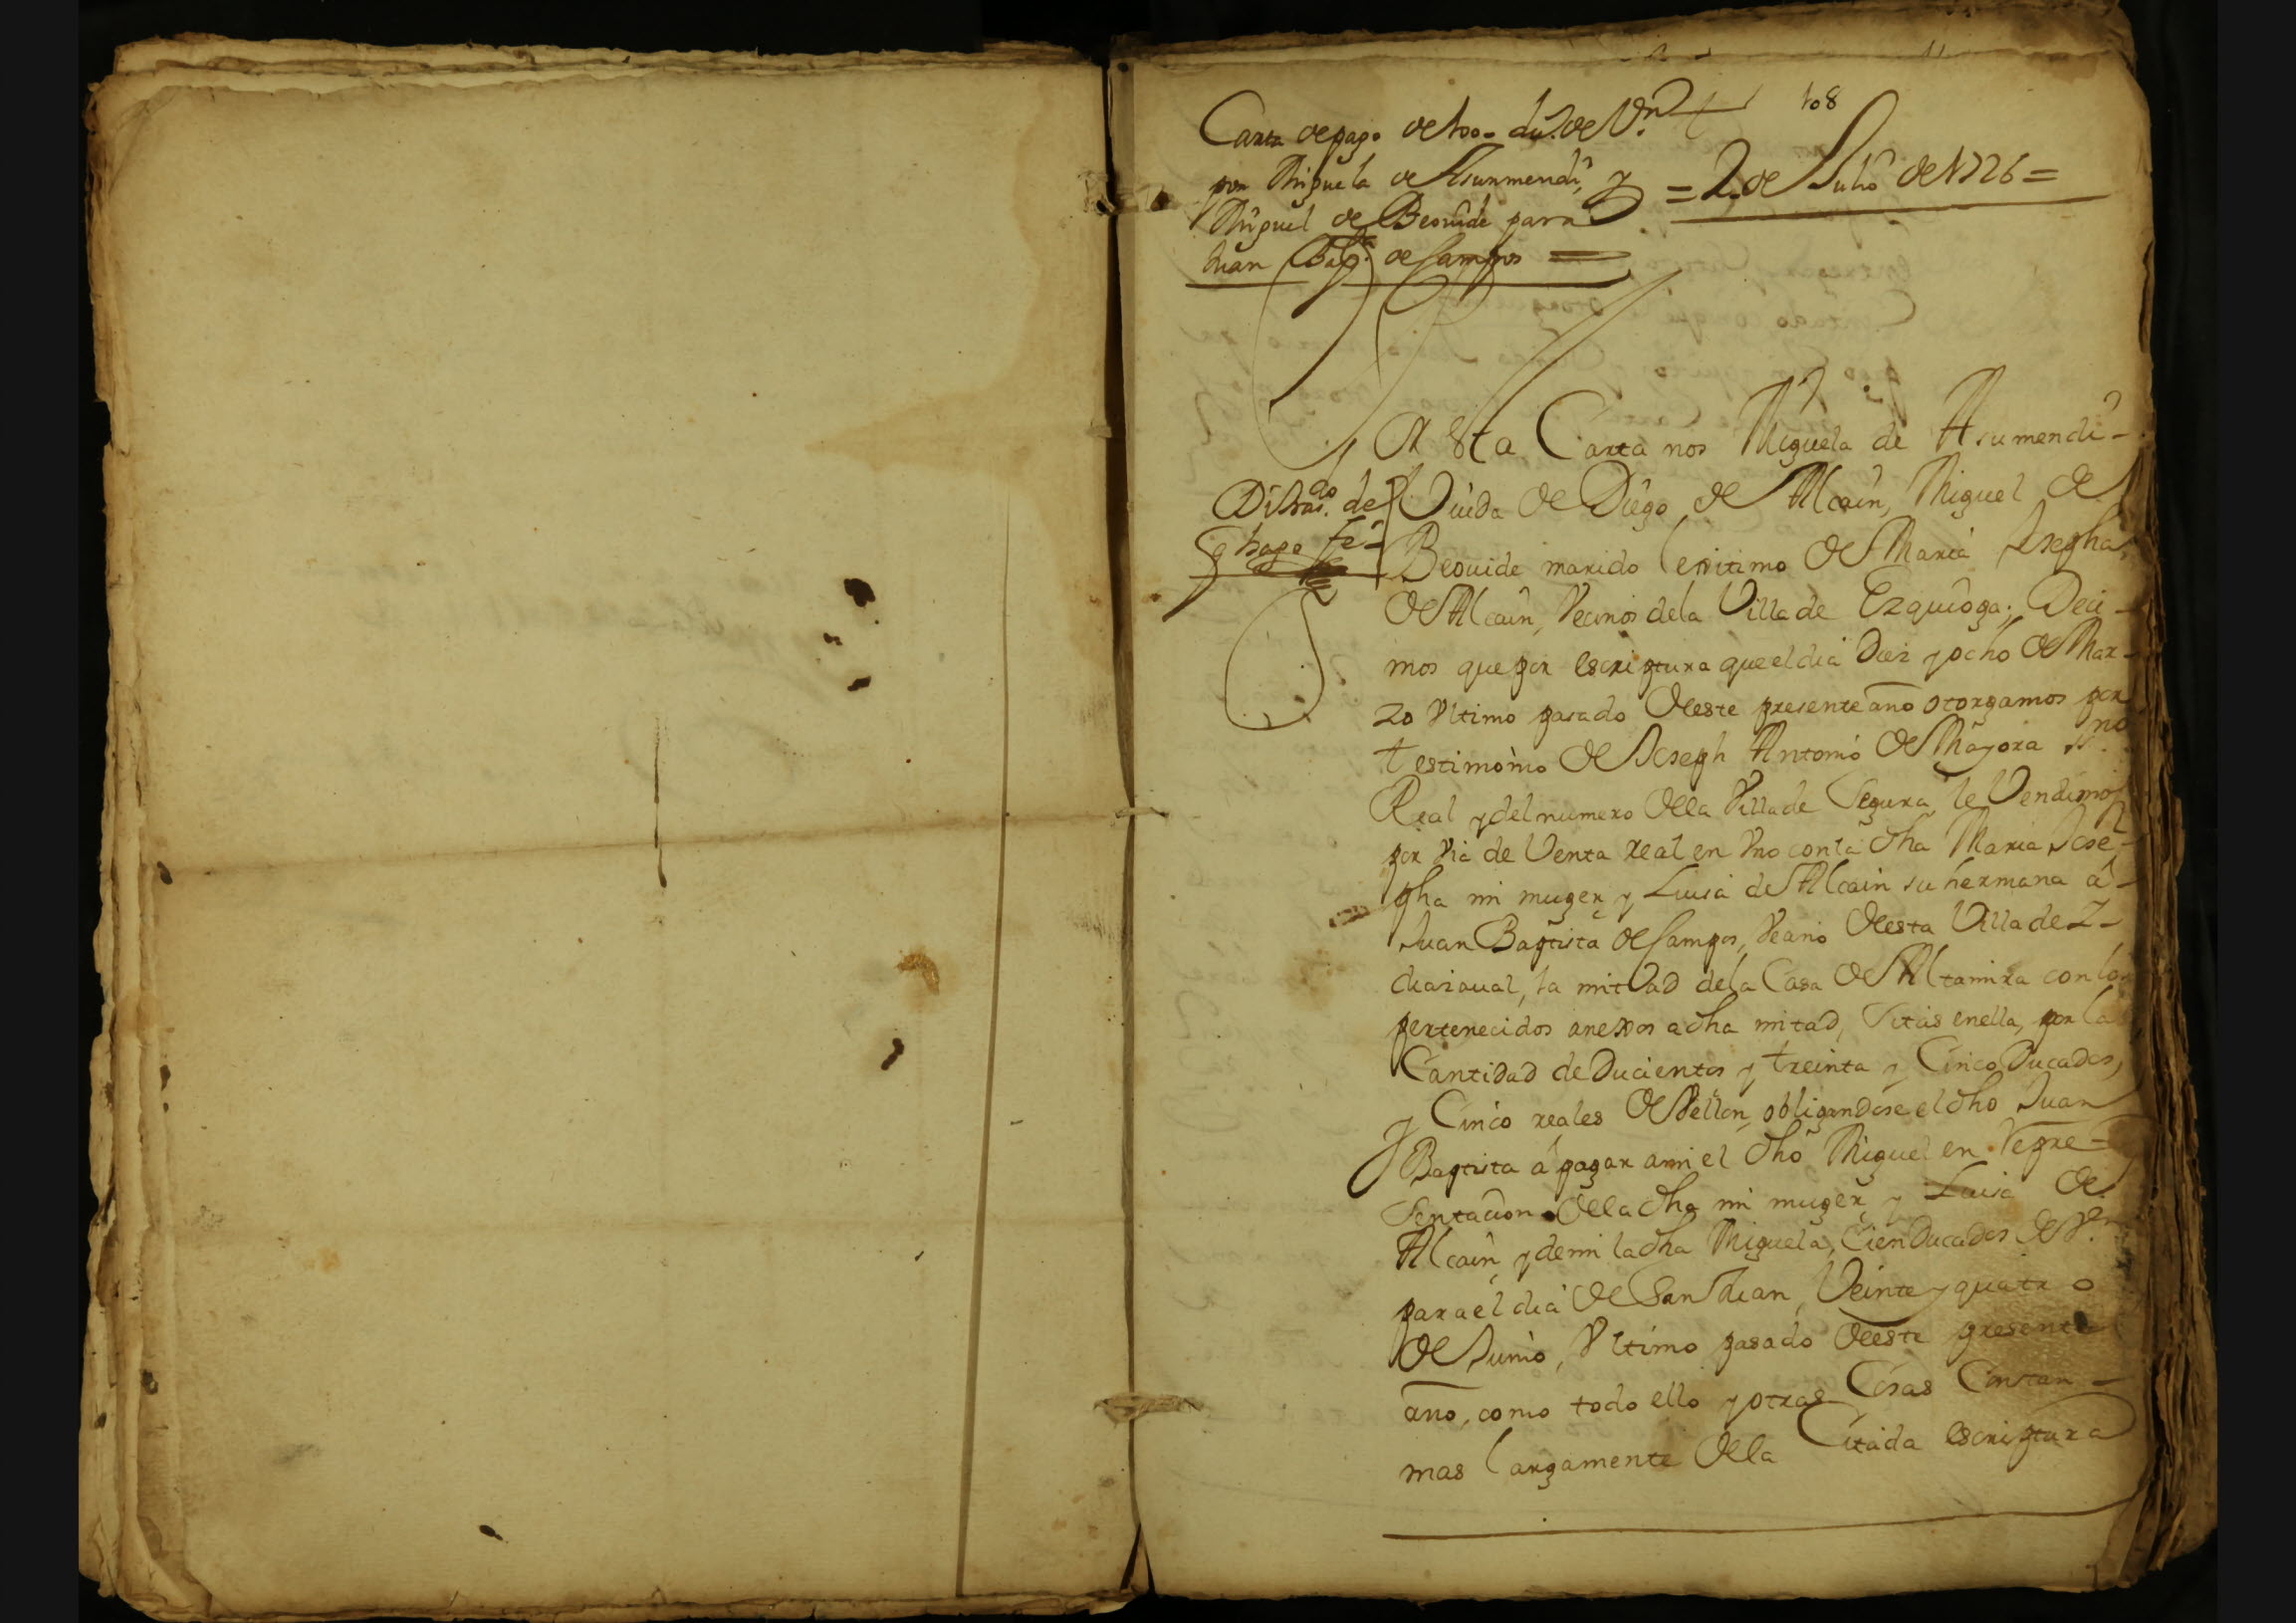 108
Carta de pago de 100 du.s de V.n
por Miguela de Asurmendi, y
Miguel de Beovide para
Juan Bap.ta de Campos =
= 2 de Julio de 1726 =
En esta Carta nos Miguela de Asurmendi-
Viuda de Diego de Alcain, Miguel de
Beovide marido lexitimo de Maria Josepha
de Alcain, Vecinos dela Villa de Ezquioga; Deci-
mos que por escriptura que el dia Diez y ocho de Mar-
zo Ultimo pasado deeste presente año otorgamos por
testimonio de Joseph Antonio de Mayora ss.no
Real y del numero dela Villa de Segura, le Vendimos
por via de Venta real en Uno con la dha Maria Jose-
pha mi muger, y Luisa de Alcain su hermana â-
Juan Baptista de Campos, Vecino deesta Villa de Y-
diazaual, la mitad dela Casa de Altamira con los
pertenecidos anexos a dha mitad, sitas en ella, por la
Cantidad de Ducientos y treinta y Cinco Ducados,
y Cinco reales de Vellon, obligandose el dho Juan
Baptista â pagar ami el dho Miguel en repre-
sentacion dela dha mi muger, y Luisa de
Alcain, y de mi la dha Miguela, Cien Ducados de V.n
para el dia de San Juan, Veinte y quatro
de Junio, Ultimo pasado deeste presente
año, como todo ello y otras Cosas Constan-
mas largamente dela Citada escriptura
Di tras.do de
q hago fe-